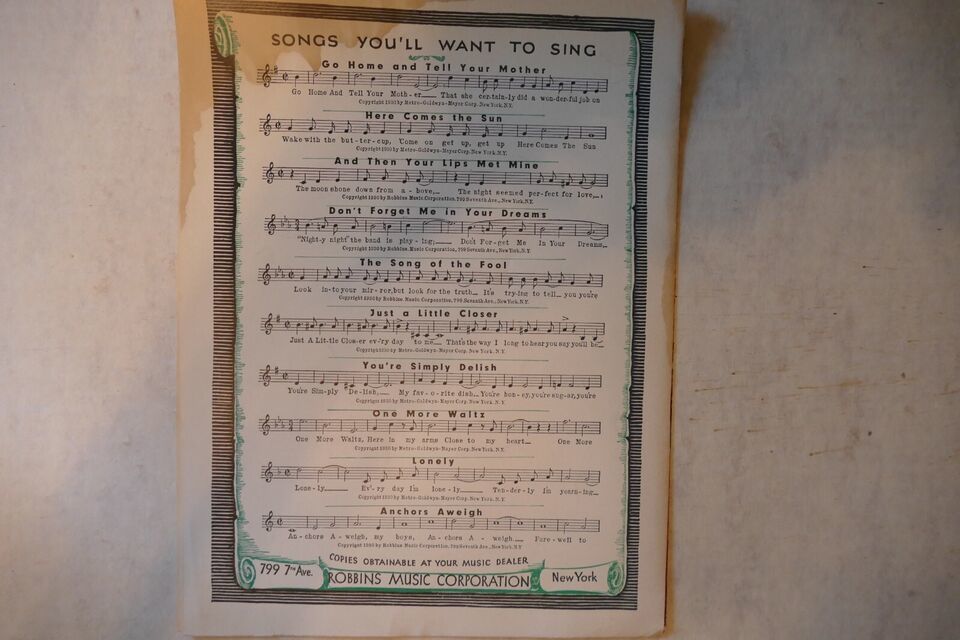 SONGS YOU'LL WANT TO SING
Go Home and Tell Your Mother
Go Home And Tell Your Moth-er That she cer-tain-ly did a won-der-ful job on
Copyright 1930 by Metro-Goldwyn-Mayer Corp. New York, N.Y.
Here Comes the Sun
Wake with the but-ter-cup, Come on get up, get up Here Comes The Sun
Copyright 1930 by Metro-Goldwyn-Mayer Corp. New York, N.Y.
And Then Your Lips Met Mine
The moon shone down from a-bove, The night seemed per-fect for love,
Copyright 1930 by Robbins Music Corporation, 799 Seventh Ave., New York, N.Y.
Don't Forget Me in Your Dreams
"Night-y night" the band is play-ing; Don't For-get Me In Your Dreams,
Copyright 1930 by Robbins Music Corporation, 799 Seventh Ave., New York, N.Y.
The Song of the Fool
Look in-to your mir-ror, but look for the truth It's try-ing to tell you you're
Copyright 1930 by Robbins Music Corporation, 799 Seventh Ave., New York, N.Y.
Just a Little Closer
Just A Lit-tle Clos-er ev-'ry day to me That's the way I long to hear you say you'll be
Copyright 1930 by Metro-Goldwyn-Mayer Corp. New York, N.Y.
You're Simply Delish
You're Sim-ply "De-lish, My fav-o-rite dish You're hon-ey, you're sug-ar, you're
Copyright 1930 by Metro-Goldwyn-Mayer Corp. New York, N.Y.
One More Waltz
One More Waltz, Here in my arms Close to my heart One More
Copyright 1930 by Metro-Goldwyn-Mayer Corp. New York, N.Y.
Lonely
Lone-ly Ev-'ry day I'm lone-ly Ten-der-ly I'm yearn-ing
Copyright 1930 by Metro-Goldwyn-Mayer Corp. New York, N.Y.
Anchors Aweigh
An-chors A-weigh, my boys, An-chors A-weigh Fare-well to
Copyright 1930 by Robbins Music Corporation, 799 Seventh Ave., New York, N.Y.
COPIES OBTAINABLE AT YOUR MUSIC DEALER
799 7TH Ave. ROBBINS MUSIC CORPORATION New York